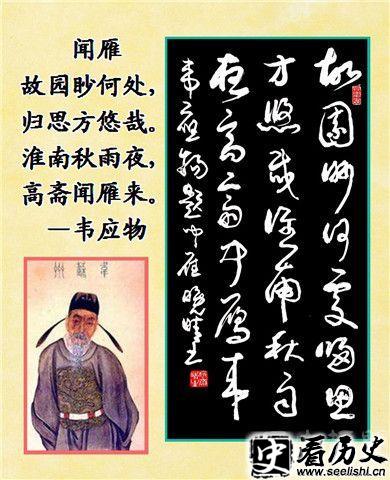 闻雁
故园眇何处，
归思方悠哉。
淮南秋雨夜，
高斋闻雁来。
—韦应物
故園眇何處歸思
方悠哉淮南秋雨
夜高斋闻雁来
韦應物题闻雁
史 看历史
www.seelishi.cn